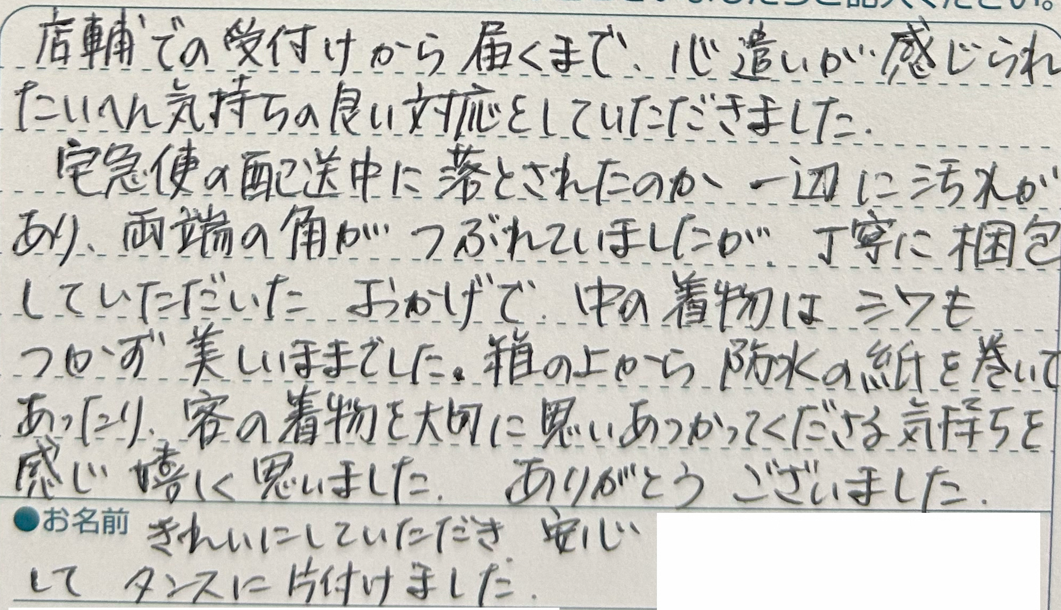 ご記入ください。
店舗での受付けから届くまで、心遣いが感じられ
たいへん気持ちの良い対応をしていただきました.
宅急便の配送中に落とされたのか、一辺に汚れが
あり、両端の角がつぶれていましたが、丁寧に梱包
していただいた おかげで、中の着物は シワも
つかず 美しいままでした。箱の上から 防水の紙を巻いて
あったり、客の着物を大切に思いあつかってくださる気持ちを
感じ 嬉しく思いました. ありがとう ございました.
●お名前 きれいにしていただき、安心
して タンスに片付けました.